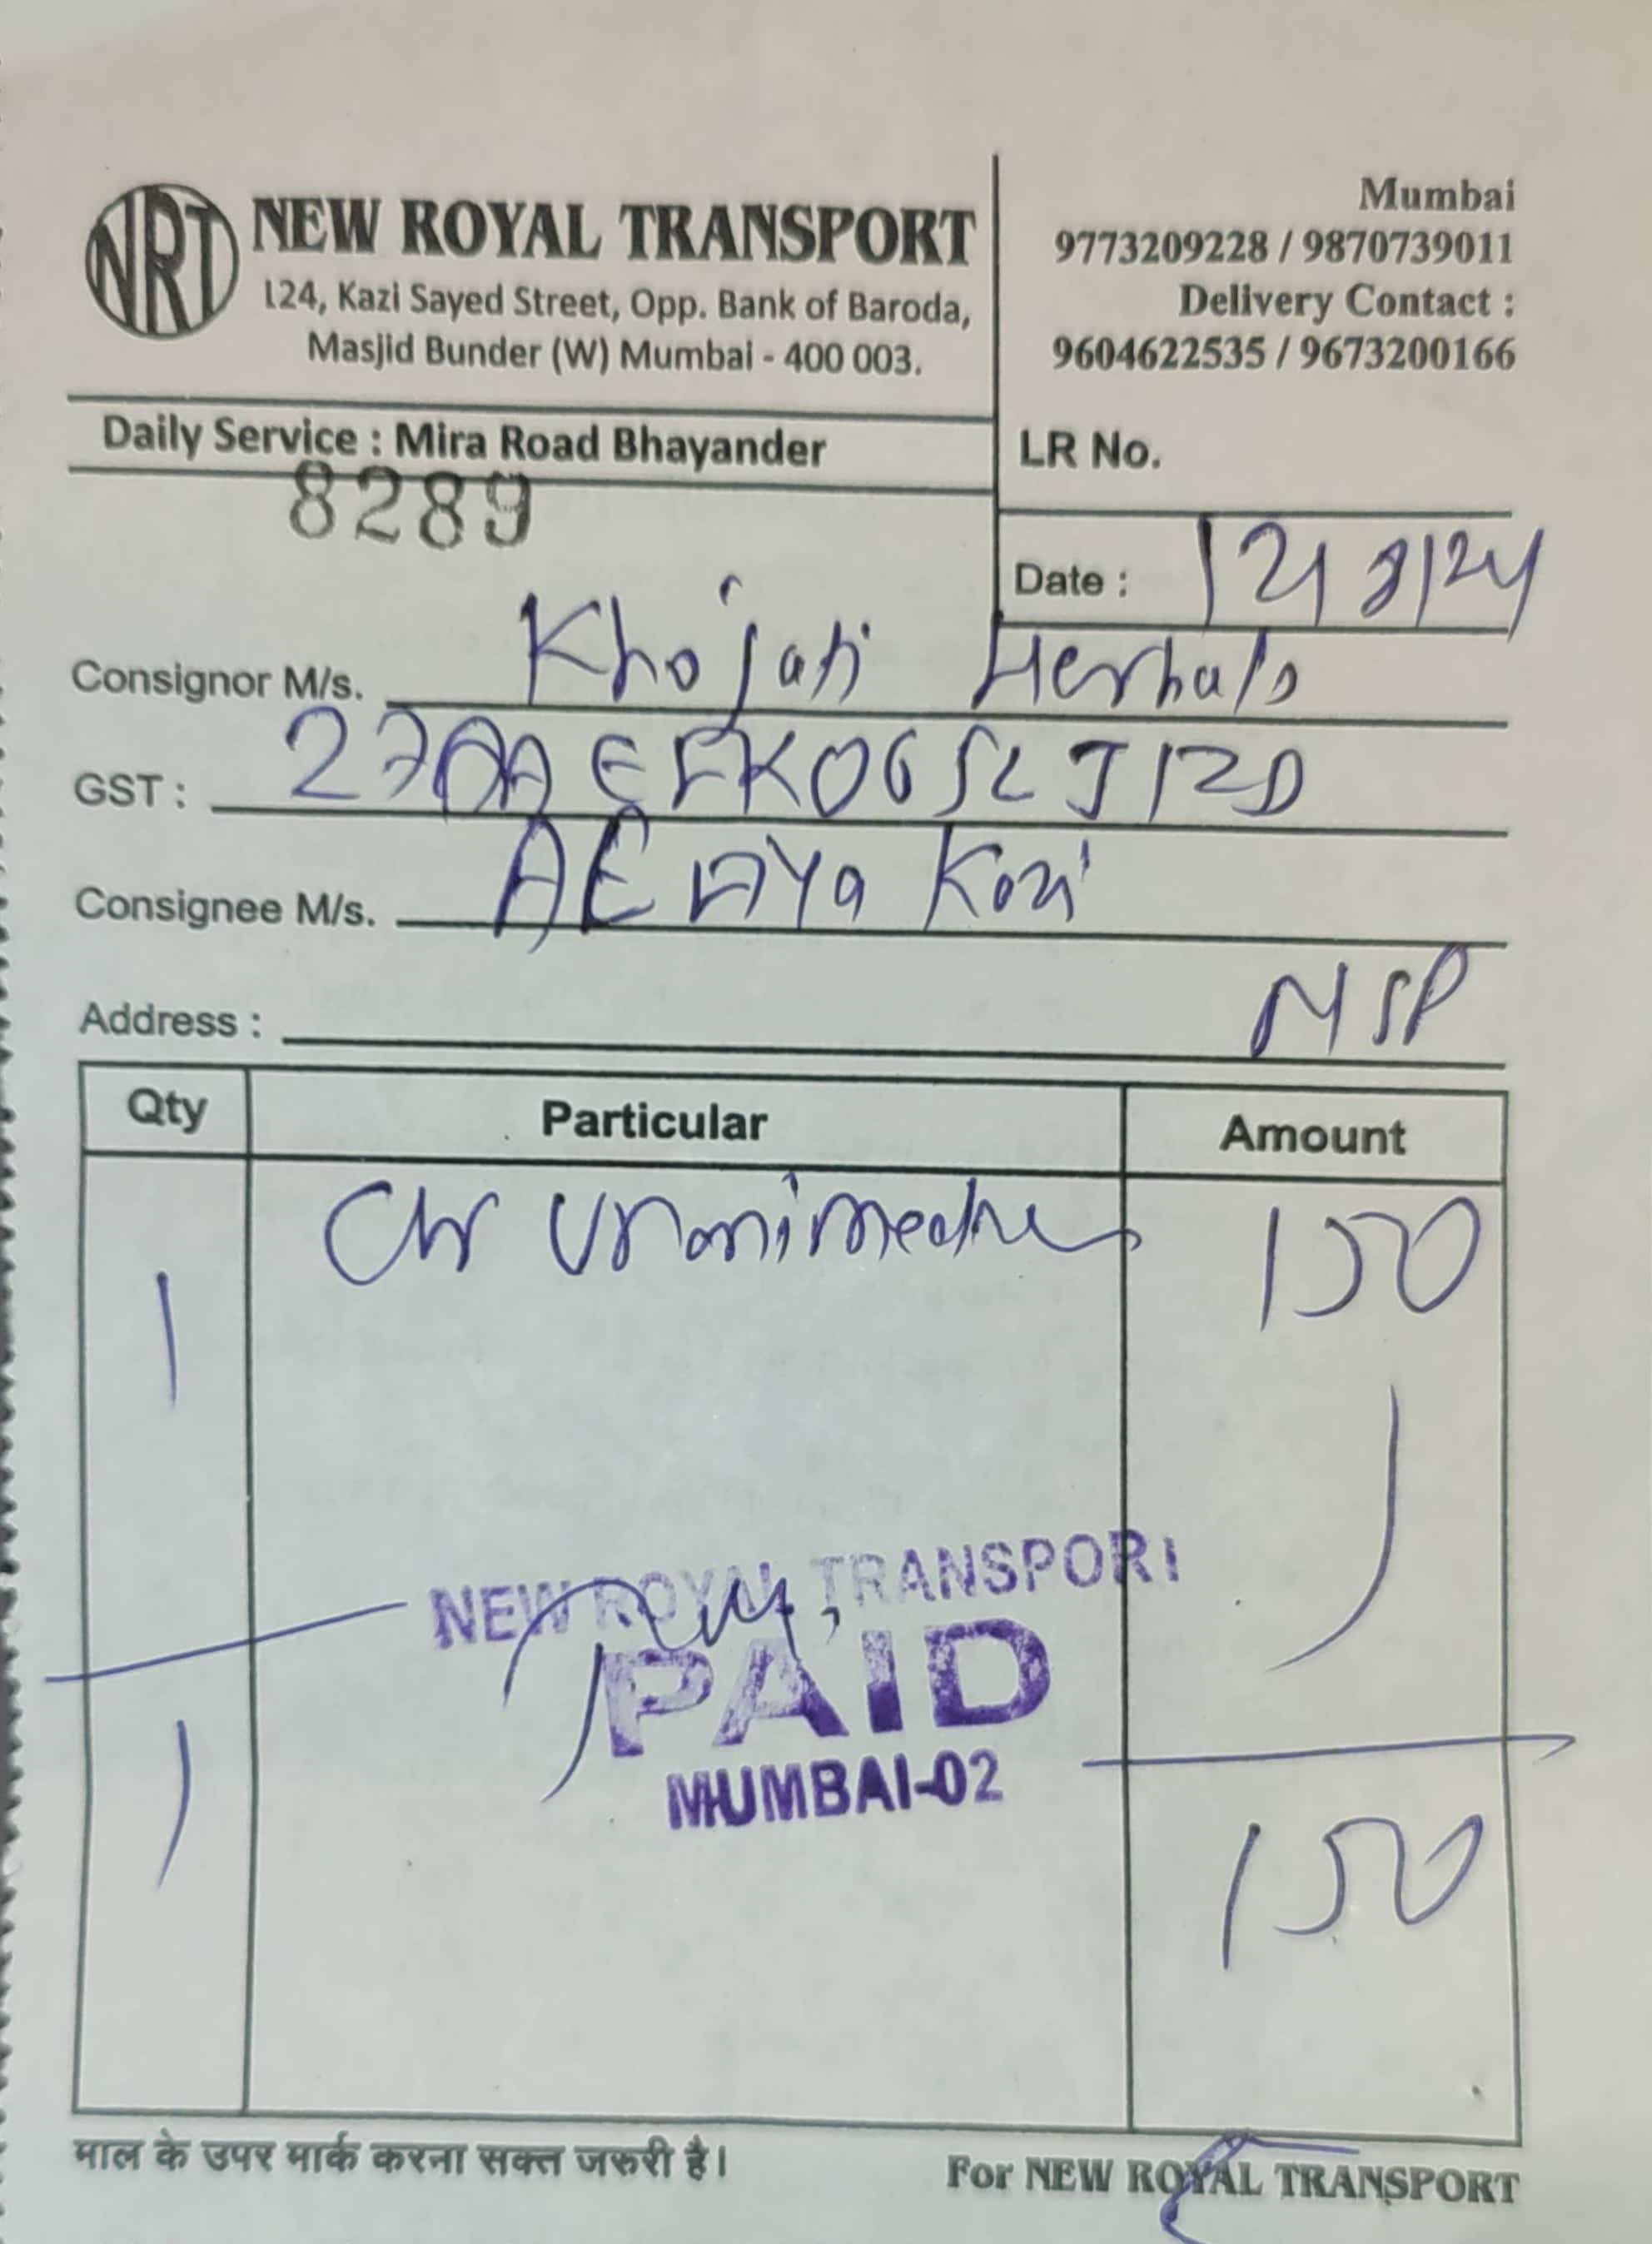 NRT
NEW ROYAL TRANSPORT
124, Kazi Sayed Street, Opp. Bank of Baroda,
Masjid Bunder (W) Mumbai - 400 003.
Mumbai
9773209228 / 9870739011
Delivery Contact :
9604622535 / 9673200166
Daily Service : Mira Road Bhayander
LR No.
8289
Date : 12/8/24
Consignor M/s. Khojati Herbals
GST :
Consignee M/s.
Address : NSP
Qty Particular Amount
1 150
NEW ROYAL TRANSPORT
PAID
MUMBAI-02
1 150
माल के उपर मार्क करना सक्त जरुरी है।
For NEW ROYAL TRANSPORT